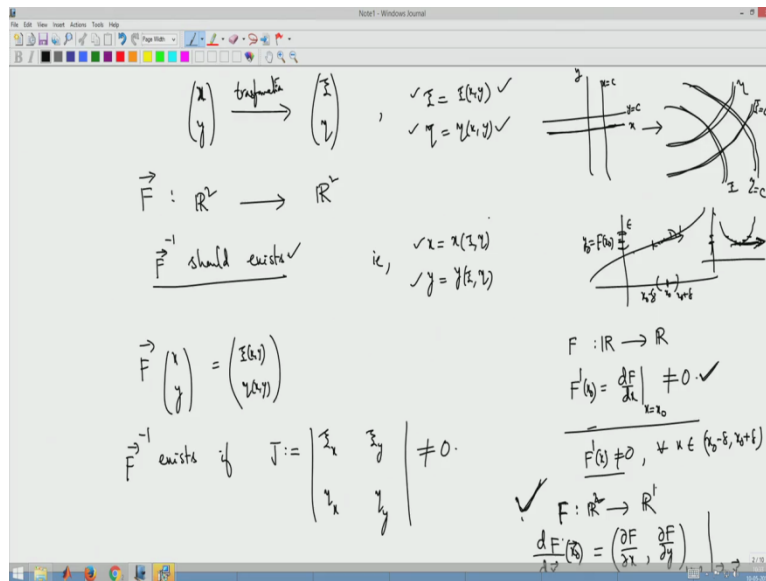 Note1 - Windows Journal
File Edit View Insert Actions Tools Help
Page Width
B I
(x y) trasformation → (ξ η) , ✓ ξ = ξ(x,y) ✓
✓ η = η(x,y) ✓
y x=c
y=c
x →
η ξ=c
ξ η=c
F⃗ : ℝ² → ℝ²
F⃗⁻¹ should exists ✓ ie, ✓ x = x(ξ,η)
✓ y = y(ξ,η)
y₀=F(x₀) ε
x₀-δ x₀ x₀+δ
F⃗ (x y) = (ξ(x,y) η(x,y))
F⃗⁻¹ exists if J := | ξx ξy | ≠ 0.
| ηx ηy |
F : ℝ → ℝ
F'(x₀) = dF/dx |x=x₀ ≠ 0. ✓
F'(x) ≠ 0, ∀ x ∈ (x₀-δ, x₀+δ)
✓ F : ℝ² → ℝ¹
dF/dx⃗ (x⃗₀) = (∂F/∂x , ∂F/∂y) |
2/10